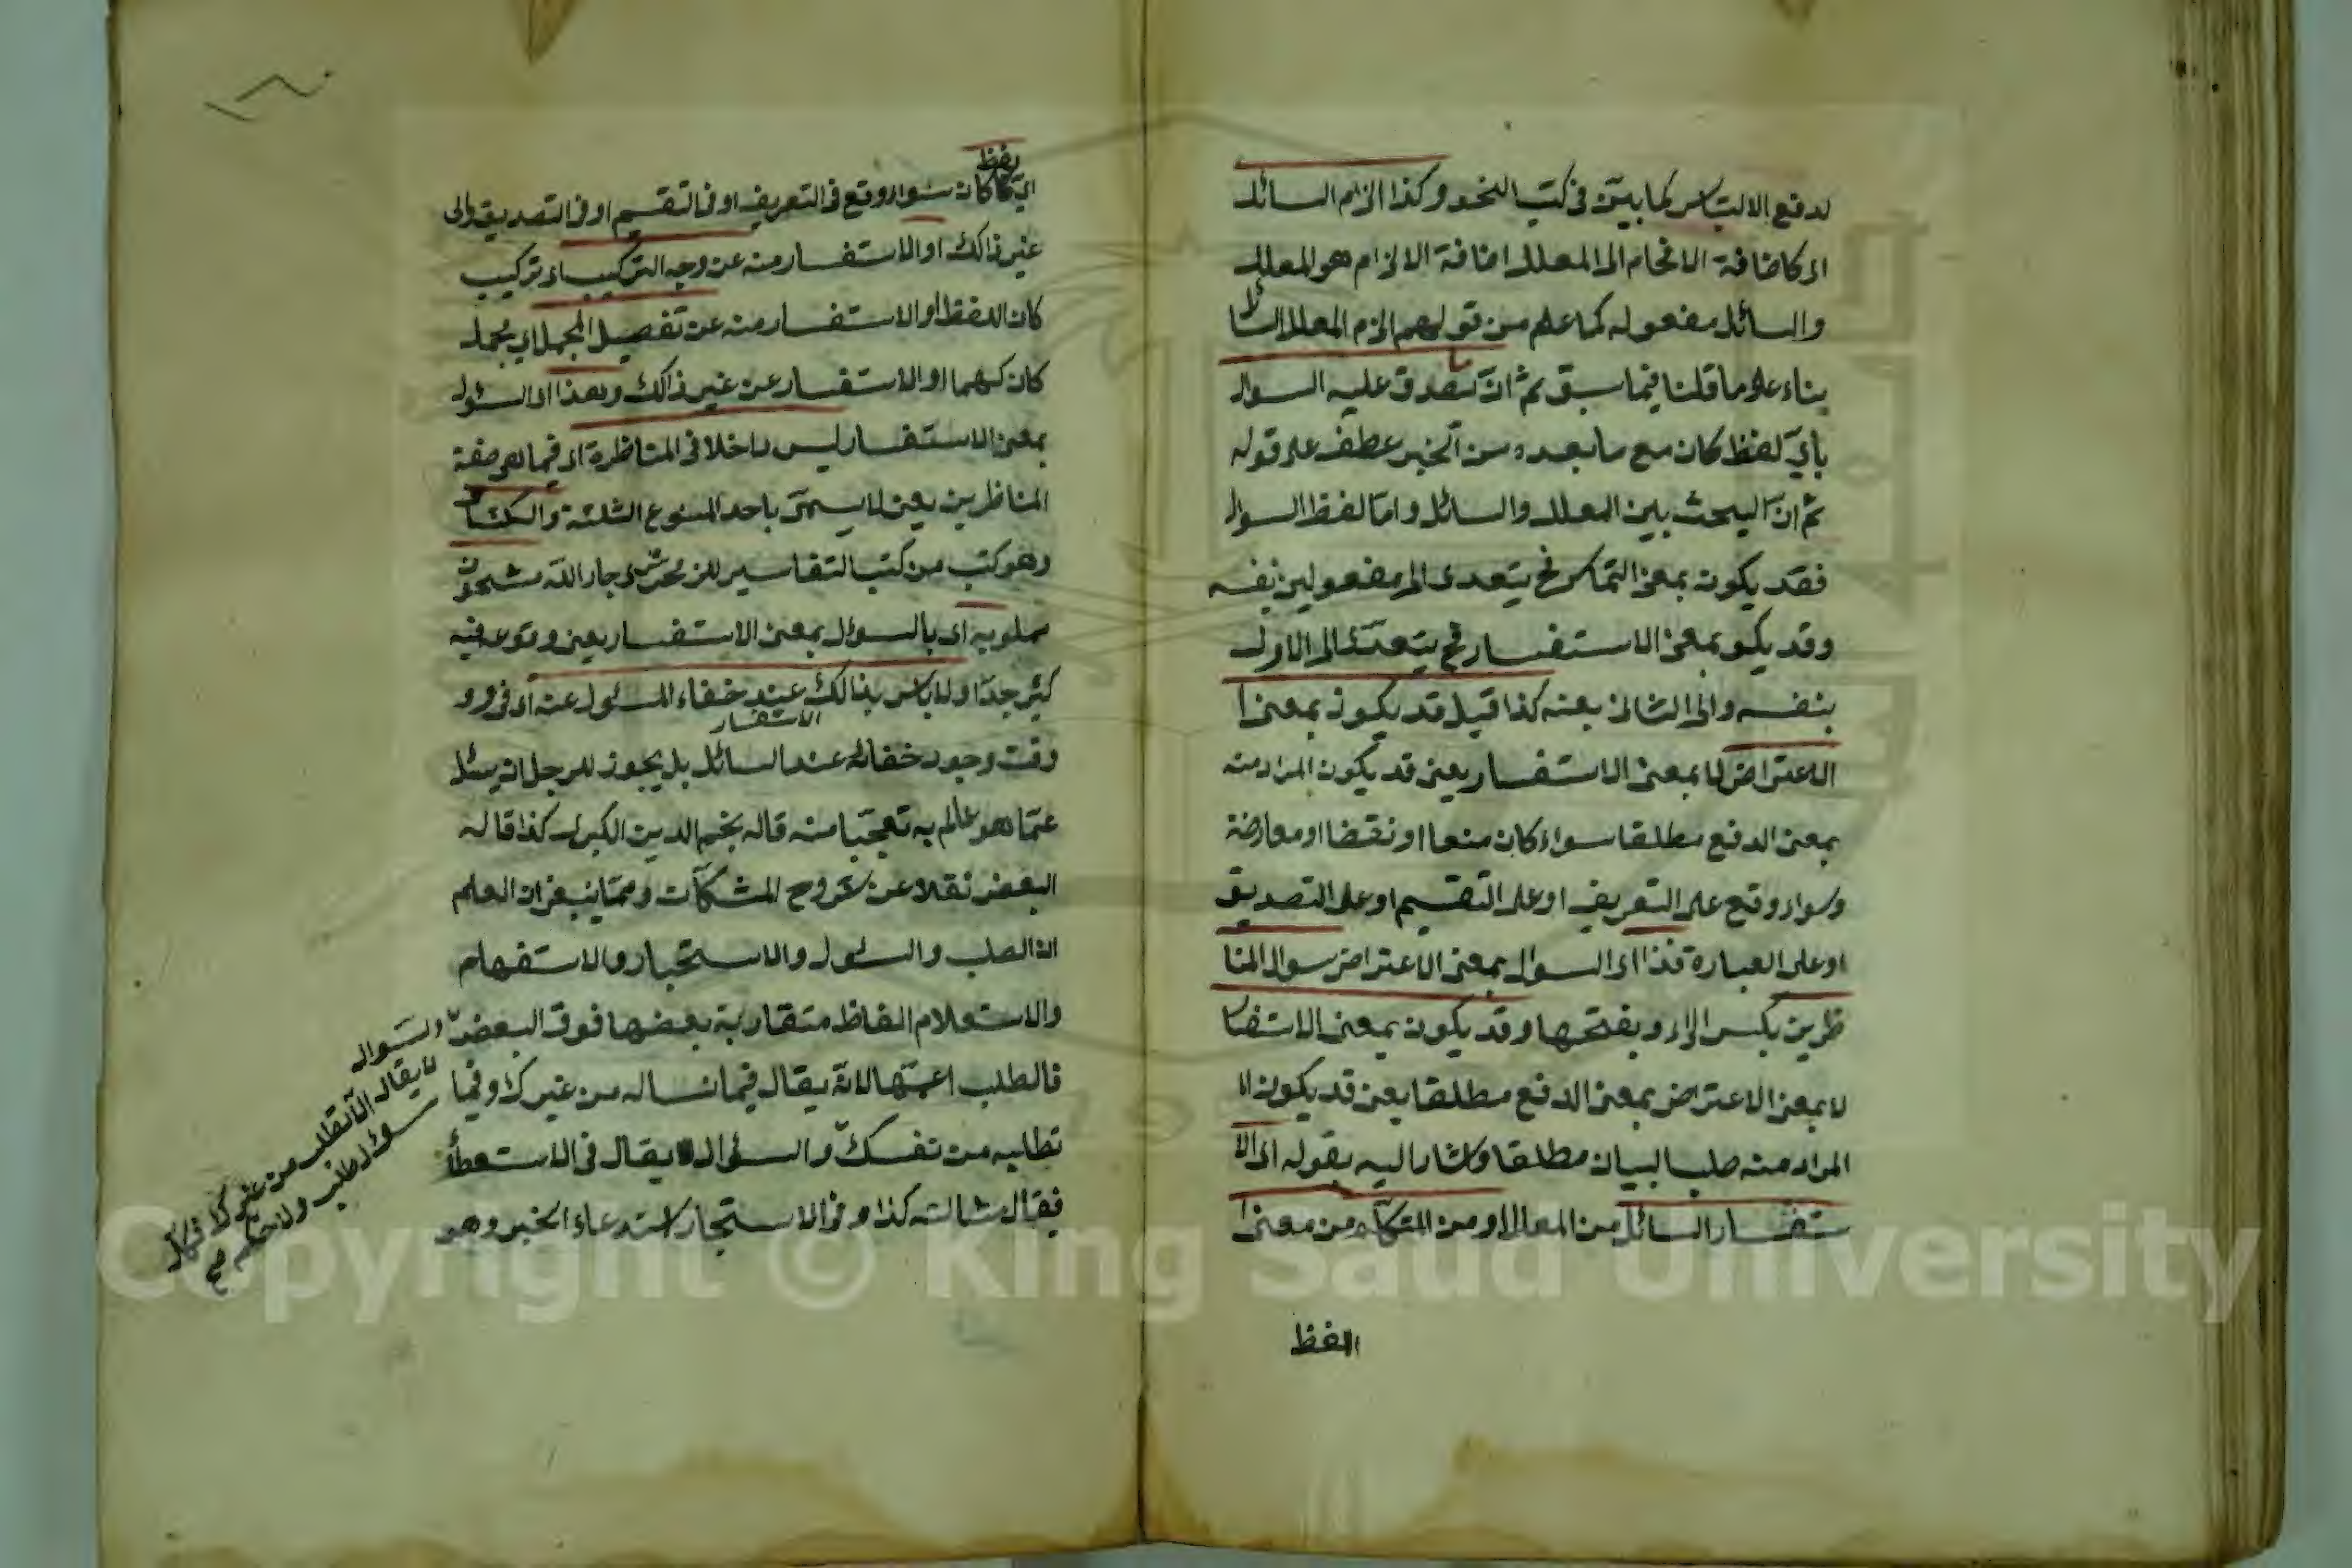 لدفع الالتباس كما بيّن في كتب النحو وكذا الزام السائل
اى كاضافة الافحام الى المعلل اضافة الالزام هو المعلل
والسائل مفعوله كما علم من قولهم الزم المعلل السائل
بناء على ما قلنا فيما سبق ثم انّ ما يصدق عليه السوال
بايّ لفظ كان مع ما بعده من الخبر عطف على قوله
ثم انّ البحث بين المعلل والسائل وامّا لفظ السوال
فقد يكون بمعنى التماس فح يتعدى الى مفعولين بنفسه
وقد يكو بمعنى الاستفسار فح يتعدى الى الاول
بنفسه والى الثانى بعنه كذا قيل قد يكون بمعنى ا
الاعتراض لا بمعنى الاستفسار يعنى قد يكون المراد منه
بمعنى الدفع مطلقا سواء كان منعا او نقضا او معارضة
وسواء وقع على التعريف او على التقسيم او على التصديق
او على العبارة فذا اى السوال بمعنى الاعتراض سوال المنا
ظرين بكسر الراء وبفتحها وقد يكون بمعنى الاستفسار
لا بمعنى الاعتراض بمعنى الدفع مطلقا يعنى قد يكون ا
المراد منه طلب البيان مطلقا واشار اليه بقوله اى الا
ستفسار السائل من المعلل او من المتكلم من معنى ا
اللفظ
ايّ لفظ كان سواء وقع فى التعريف او فى التقسيم او فى التصديق والى
غير ذالك او الاستفسار منه عن وجه التركيب اى تركيب
كان اللفظ او الاستفسار منه عن تفصيل المجمل اى مجمل
كان كهما او الاستفسار عن غير ذالك وهذا اى السؤل
بمعنى الاستفسار ليس داخلا فى المناظرة اى فيما هى صفة
المناظرين يعنى لا يسمى باحد المنوع الثلثة والكشاف
وهو كتب من كتب التفاسير للزمحشرى جار الله مشحون
مملو به اى بالسؤال بمعنى الاستفسار يعنى وقوعه فيه
كثير جدّا ولا باس بذالك عند خفاء المسئول عنه اى فى
الاستفسار
وقت وجود خفائه عند السائل بل يجوز للرجل ان يسئل
عمّا هو عالم به تعجّبا منه قاله نجم الدين الكبرى كذا قاله
البعض نقلا عن شروح المشكات وممّا ينبغى ان العلم
ان الطلب والسئول والاستخبار والاستفهام
والاستعلام الفاظ متقاربة بعضها فوق البعض
فالطلب اعمّها لانّه يقال فيما تساله من غيرك وفيما
تطلبه من نفسك والسئوال لا يقال فى الاستعطأ
فيقال سئالته كذا وفى الاستخبار استدعاء الخبر وهو
والسّوال
لا يقال الّا تطلب من غيرك
سؤل طلب ولا
Copyright © King Saud University